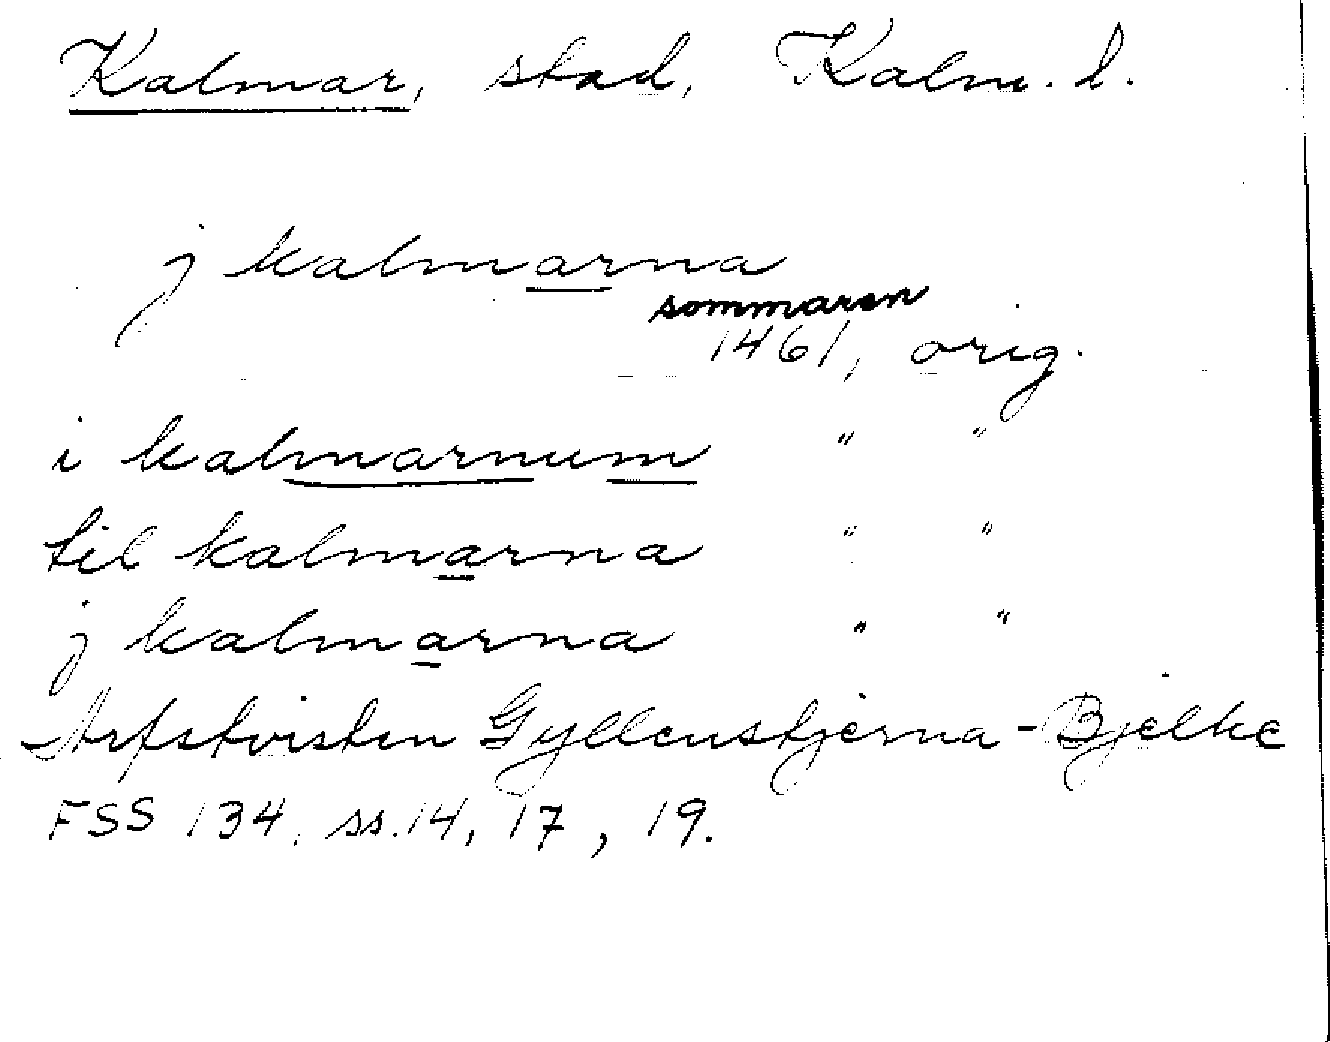 Kalmar, stad, Kalm. l.
j kalmarna
sommaren
1461, orig.
i kalmarnum " "
til kalmarna " "
j kalmarna " "
Arfstvisten Gyllenstjerna-Bjelke
FSS 134, ss. 14, 17, 19.